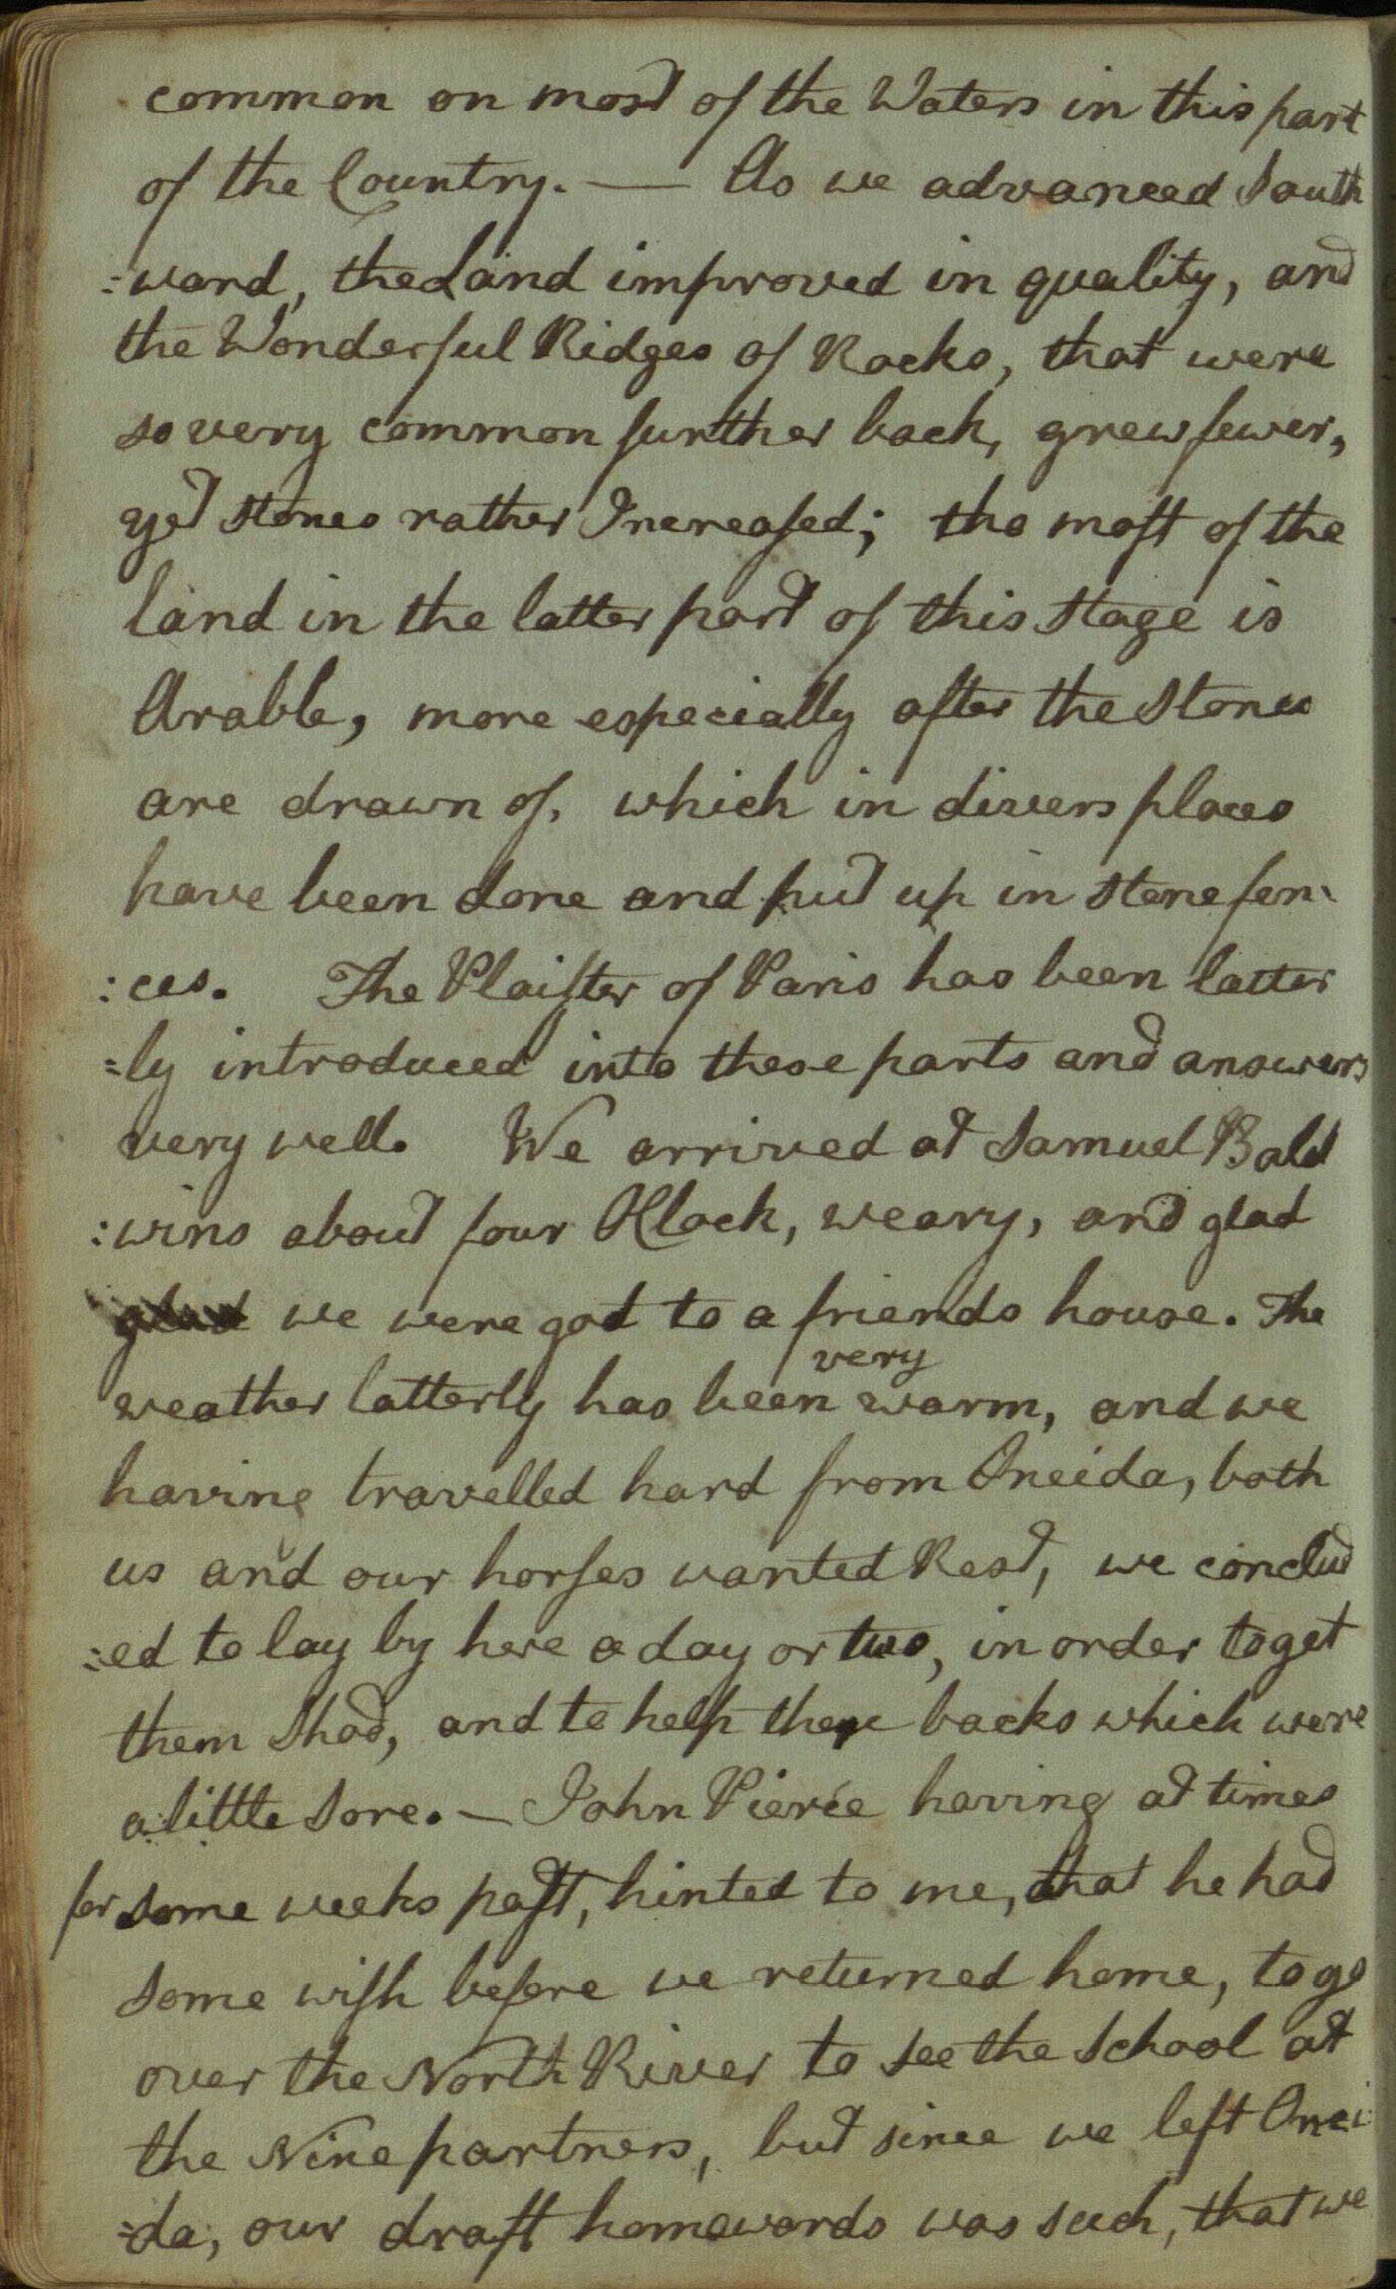 common on most of the Waters in this part
of the Country. — As we advanced South
:ward, the Land improved in quality, and
the Wonderful Ridges of Rocks, that were
so very common further back, grew fewer,
yet stones rather Increased; tho most of the
land in the latter part of this stage is
Arable, more especially after the stones
are drawn of, which in divers places
have been done and put up in stone fen:
:ces. The Plaister of Paris has been latter
=ly introduced into these parts and answers
very well. We arrived at Samuel Bald
:wins about four OClock, weary, and glad
glad we were got to a friends house. The
weather latterly has been very warm, and we
having travelled hard from Oneida, both
us and our horses wanted Rest, we conclud
:ed to lay by here a day or two, in order to get
them Shod, and to help their backs which were
a little sore. — John Pierce having at times
for some weeks past, hinted to me, that he had
some wish before we returned home, to go
over the North River to see the School at
the Nine partners, but since we left Onei
=da, our draft homewards was such, that we